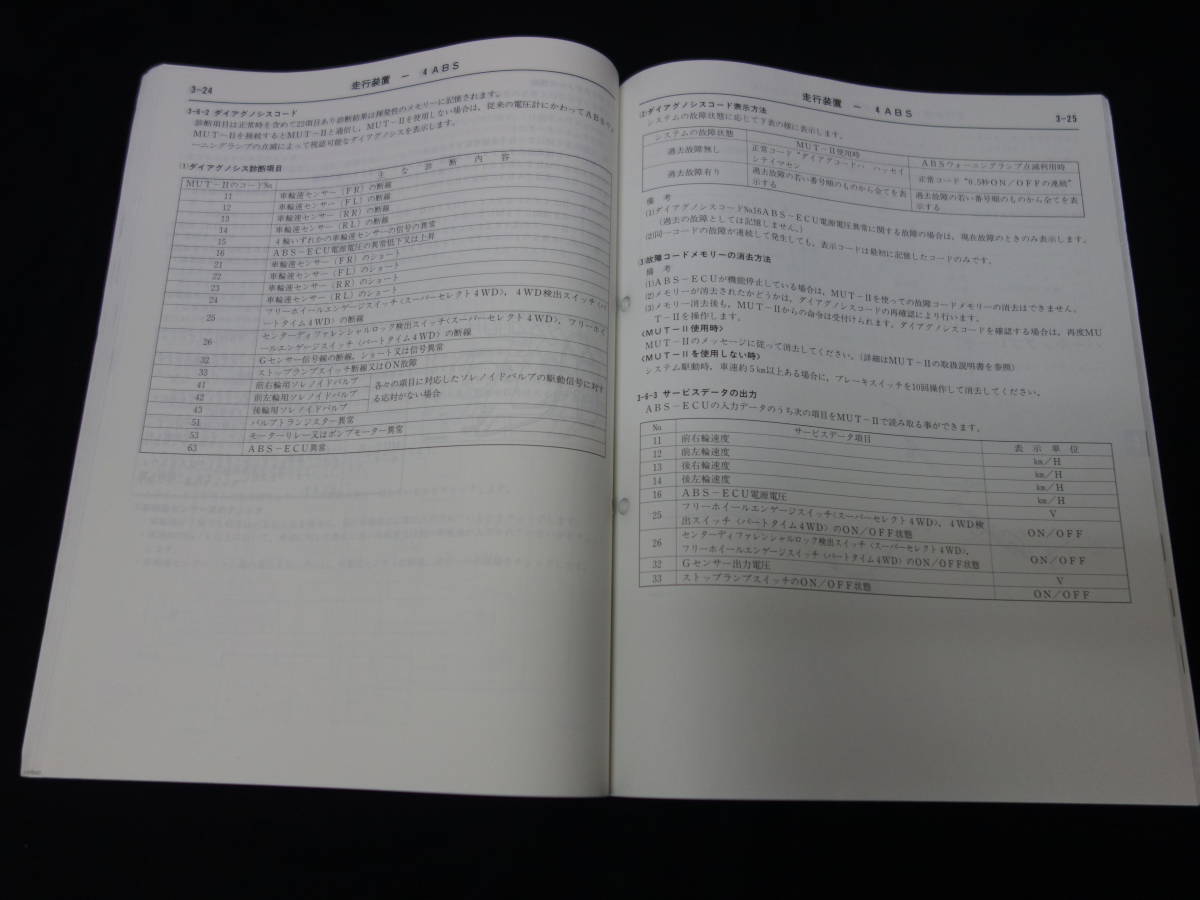 3-24
走行装置 － 4ABS
3-6-2 ダイアグノシスコード
診断項目は正常時を含めて22項目あり診断結果は揮発性のメモリーに記憶されます。
MUT－Ⅱを接続するとMUT－Ⅱと通信し，MUT－Ⅱを使用しない場合は，従来の電圧計にかわってABSウォ
ーニングランプの点滅によって視認可能なダイアグノシスを表示します。
⑴ダイアグノシス診断項目
MUT－ⅡのコードNo. 主な診断内容
11 車輪速センサー（FR）の断線
12 車輪速センサー（FL）の断線
13 車輪速センサー（RR）の断線
14 車輪速センサー（RL）の断線
15 4輪いずれかの車輪速センサーの信号の異常
16 ABS－ECU電源電圧の異常低下又は上昇
21 車輪速センサー（FR）のショート
22 車輪速センサー（FL）のショート
23 車輪速センサー（RR）のショート
24 車輪速センサー（RL）のショート
25 フリーホイールエンゲージスイッチ〈スーパーセレクト4WD〉，4WD検出スイッチ〈パ
ートタイム4WD〉の断線
26 センターディファレンシャルロック検出スイッチ〈スーパーセレクト4WD〉，フリーホイ
ールエンゲージスイッチ〈パートタイム4WD〉の断線
32 Gセンサー信号線の断線，ショート又は信号異常
33 ストップランプスイッチ断線又はON故障
41 前右輪用ソレノイドバルブ 各々の項目に対応したソレノイドバルブの駆動信号に対す
42 前左輪用ソレノイドバルブ る応対がない場合
43 後輪用ソレノイドバルブ
51 バルブトランジスター異常
53 モーターリレー又はポンプモーター異常
63 ABS－ECU異常
走行装置 － 4ABS
3-25
⑵ダイアグノシスコード表示方法
システムの故障状態に応じて下表の様に表示します。
システムの故障状態 MUT－Ⅱ使用時 ABSウォーニングランプ点滅利用時
過去故障無し 正常コード“ダイアグコードハ ハッセイ 正常コード“0.5秒ON／OFFの連続”
シテイマセン
過去故障有り 過去故障の若い番号順のものから全てを表 過去故障の若い番号順のものから全てを表
示する 示する
備 考
(1)ダイアグノシスコードNo.16ABS－ECU電源電圧異常に関する故障の場合は，現在故障のときのみ表示します。
（過去の故障としては記憶しません。）
(2)同一コードの故障が連続して発生しても，表示コードは最初に記憶したコードのみです。
⑶故障コードメモリーの消去方法
備 考
(1)ABS－ECUが機能停止している場合は，MUT－Ⅱを使っての故障コードメモリーの消去はできません。
(2)メモリーが消去されたかどうかは，ダイアグノシスコードの再確認により行います。
(3)メモリー消去後も，MUT－Ⅱからの命令は受付けられます。ダイアグノシスコードを確認する場合は，再度MU
T－Ⅱを操作します。
〈MUT－Ⅱ使用時〉
MUT－Ⅱのメッセージに従って消去してください。（詳細はMUT－Ⅱの取扱説明書を参照）
〈MUT－Ⅱを使用しない時〉
システム駆動時，車速約5㎞以上ある場合に，ブレーキスイッチを10回操作して消去してください。
3-6-3 サービスデータの出力
ABS－ECUの入力データのうち次の項目をMUT－Ⅱで読み取る事ができます。
No. サービスデータ項目 表示単位
11 前右輪速度 ㎞／H
12 前左輪速度 ㎞／H
13 後右輪速度 ㎞／H
14 後左輪速度 ㎞／H
16 ABS－ECU電源電圧 V
25 フリーホイールエンゲージスイッチ〈スーパーセレクト4WD〉，4WD検
出スイッチ〈パートタイム4WD〉のON／OFF状態 ON／OFF
26 センターディファレンシャルロック検出スイッチ〈スーパーセレクト4WD〉，
フリーホイールエンゲージスイッチ〈パートタイム4WD〉のON／OFF状態 ON／OFF
32 Gセンサー出力電圧 V
33 ストップランプスイッチのON／OFF状態 ON／OFF